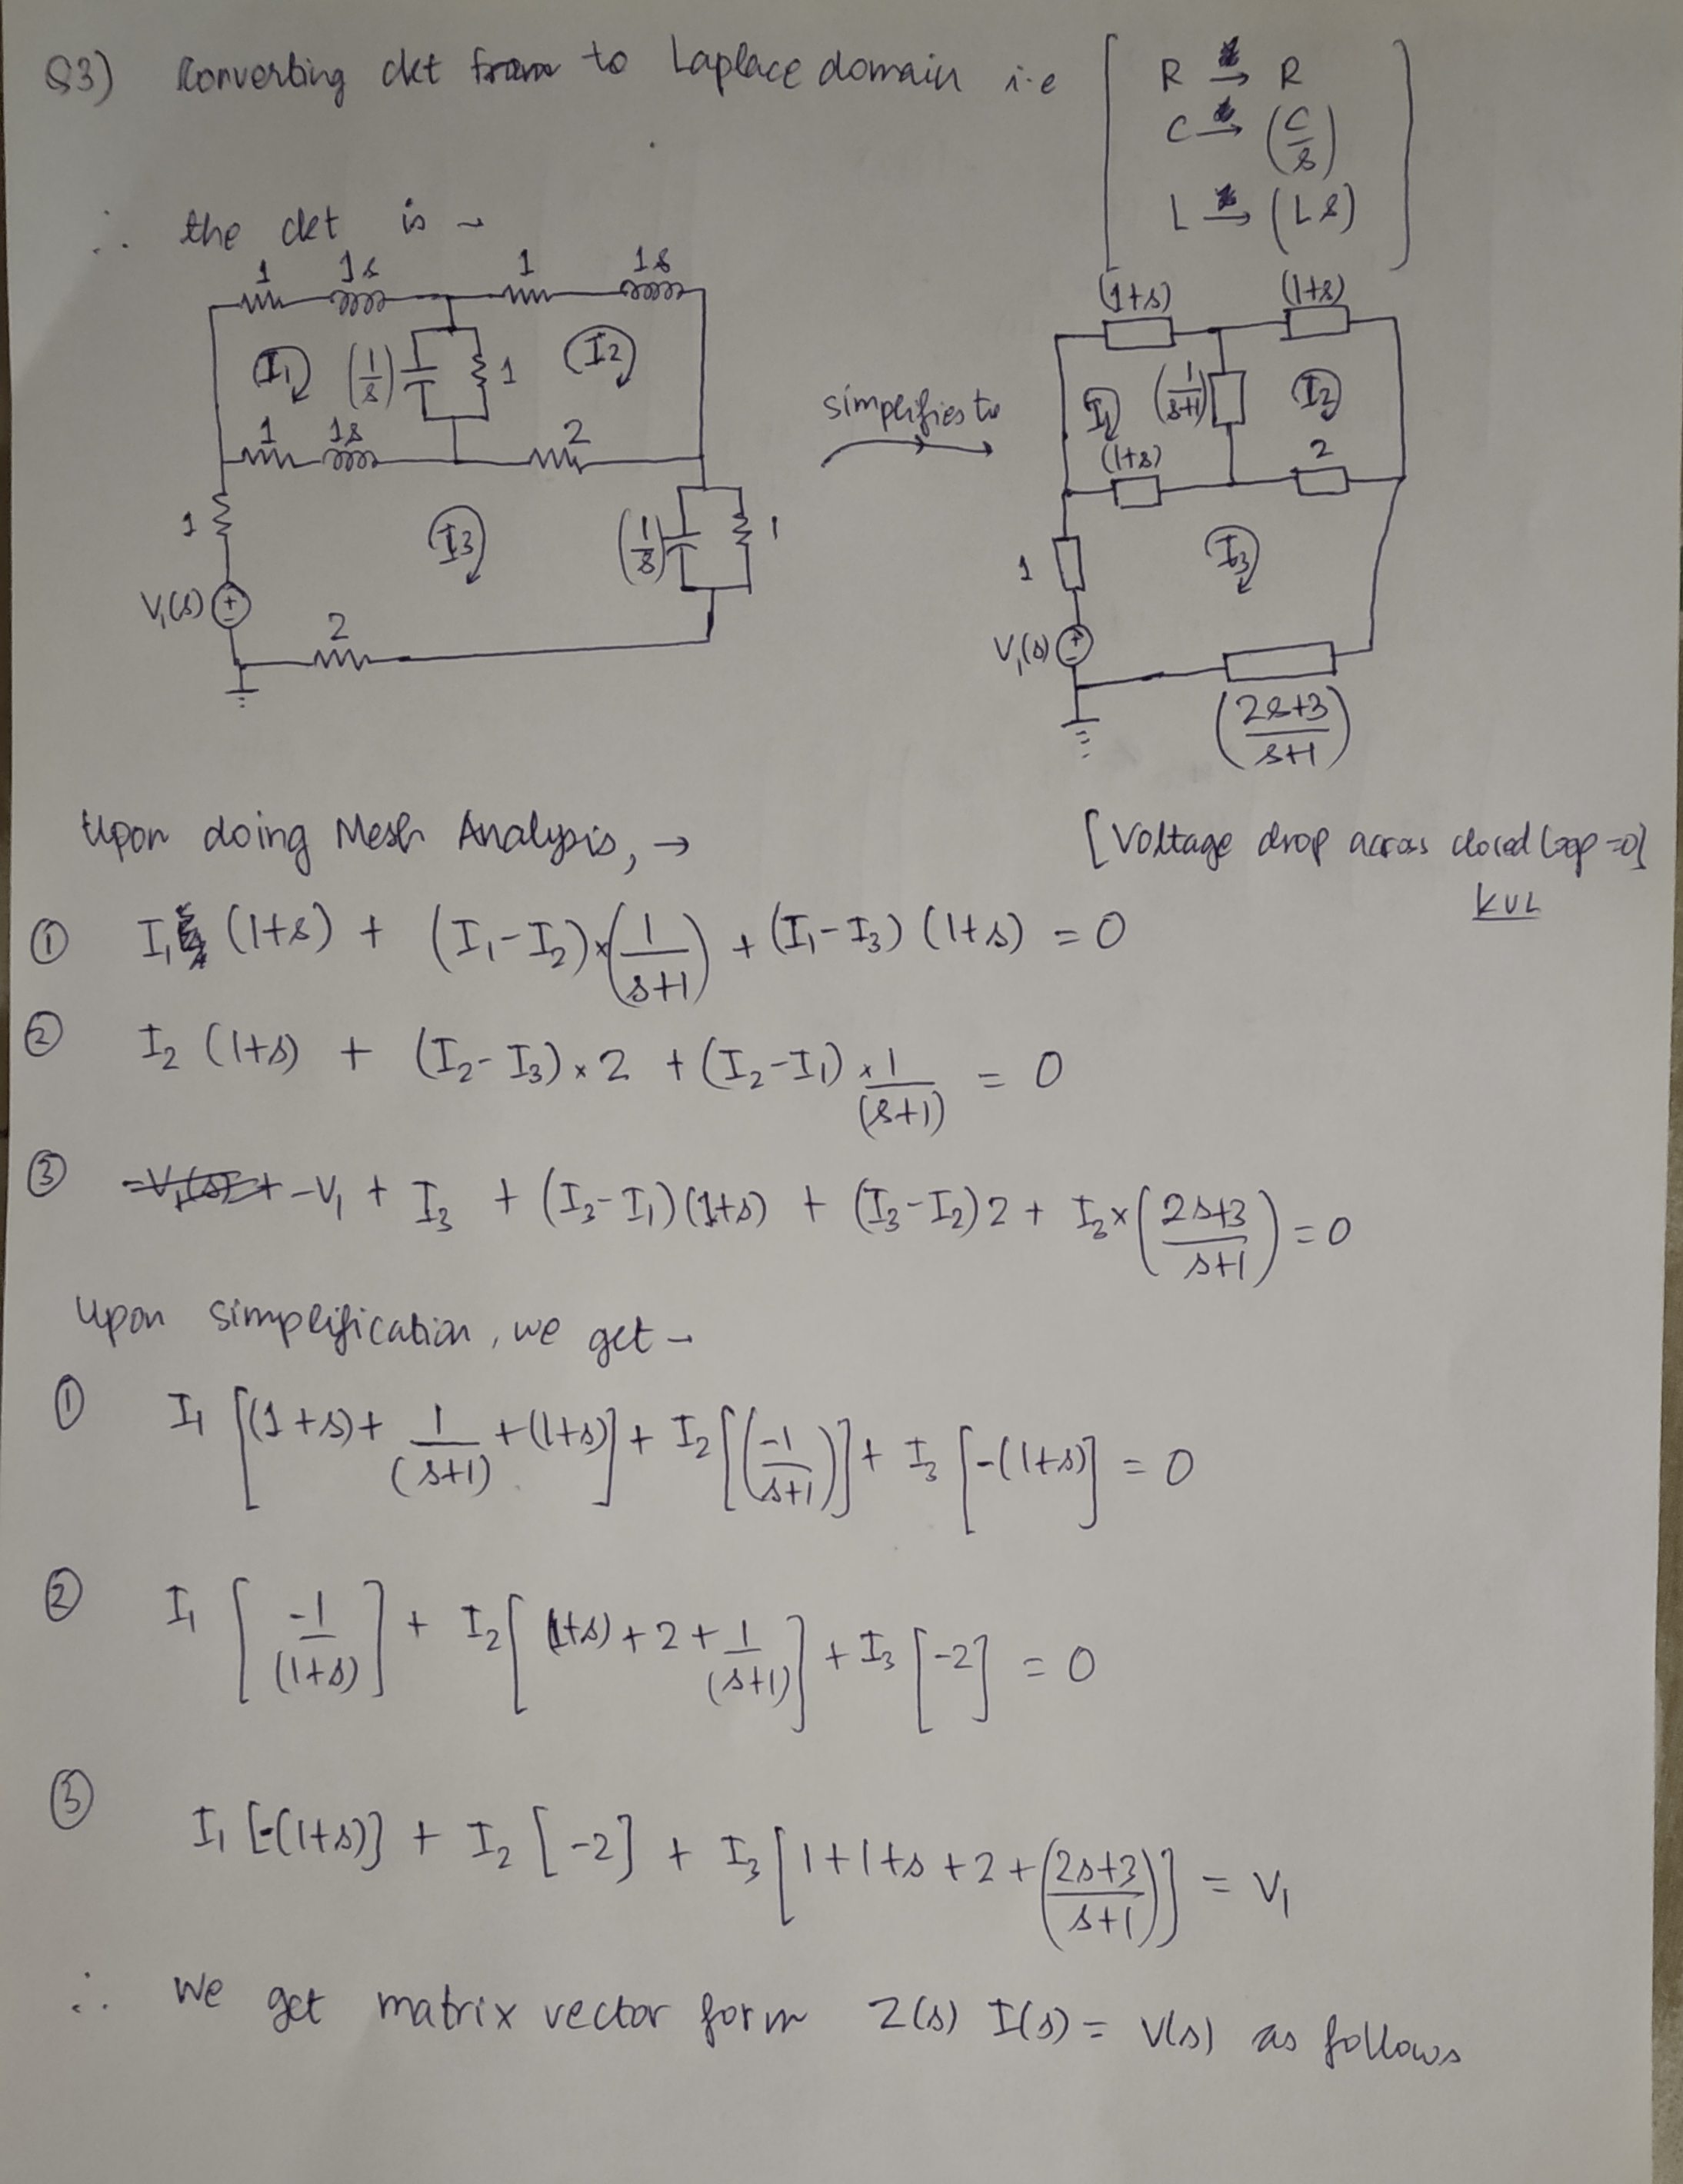 Q3) Converting ckt to Laplace domain i.e
R → R
C → (C/s)
L → (Ls)
∴ the ckt is →
1 1s 1 1s
I1 (1/s) 1 I2
1 1s 2
1 I3 (1/s) 1
V1(s)
2
simplifies to
(1+s) (1+s)
I1 (1/s+1) I2
(1+s) 2
1 I3
V1(s)
(2s+3/s+1)
Upon doing Mesh Analysis, → [Voltage drop across closed loop =0]
KVL
① I1 (1+s) + (I1-I2)×(1/s+1) + (I1-I3) (1+s) = 0
② I2 (1+s) + (I2-I3)×2 + (I2-I1)×1/(s+1) = 0
③ -V1 + I3 + (I3-I1)(1+s) + (I3-I2)2 + I3×(2s+3/s+1) = 0
Upon simplification, we get →
① I1 [(1+s)+ 1/(s+1) +(1+s)] + I2 [(-1/s+1)] + I3 [-(1+s)] = 0
② I1 [-1/(1+s)] + I2 [(1+s)+2+1/(s+1)] + I3 [-2] = 0
③ I1 [-(1+s)] + I2 [-2] + I3 [1+1+s+2+(2s+3/s+1)] = V1
∴ We get matrix vector form Z(s) I(s) = V(s) as follows